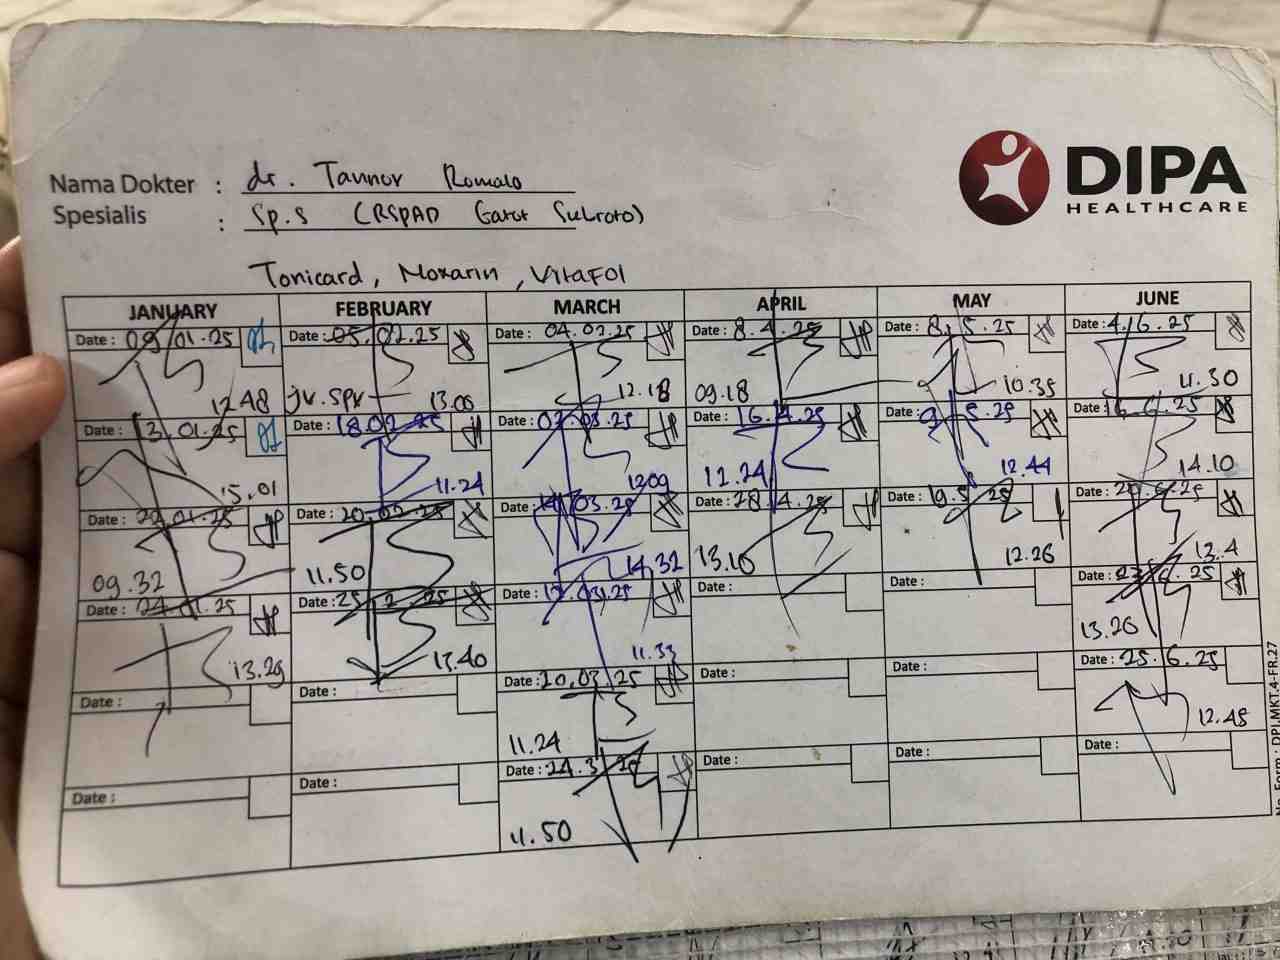 DIPA
HEALTHCARE
Nama Dokter : dr. Tannor Romalo
Spesialis : Sp.S (RSPAD Gatot Subroto)
Tonicard, Moxarin, Vitafol
JANUARY FEBRUARY MARCH APRIL MAY JUNE
Date : 09.01.25 Date : 05.02.25 Date : 04.02.25 Date : 8.4.25 Date : 8.5.25 Date : 4.6.25
12.48 jv. spv 13.00 12.18 09.18 10.35 11.30
Date : 13.01.25 Date : 18.02.25 Date : 07.03.25 Date : 16.4.25 Date : 9.5.25 Date :
15.01 11.24 1209 12.24 12.44 14.10
Date : Date : 20.02.25 Date : 14.03.25 Date : 28.4.25 Date : 19.5.25 Date :
09.32 11.50 14.32 13.10 12.26 13.4
Date : 24.01.25 Date : 25.2.25 Date : 17.03.25 Date : Date : Date : 23.6.25
13.29 13.40 11.33 13.26
Date : Date : Date : 20.03.25 Date : Date : Date : 25.6.25
11.24 12.45
Date : Date : Date : 24.3.25 Date : Date : Date :
11.50
No. Form : DPI.MKT.4-FR.27